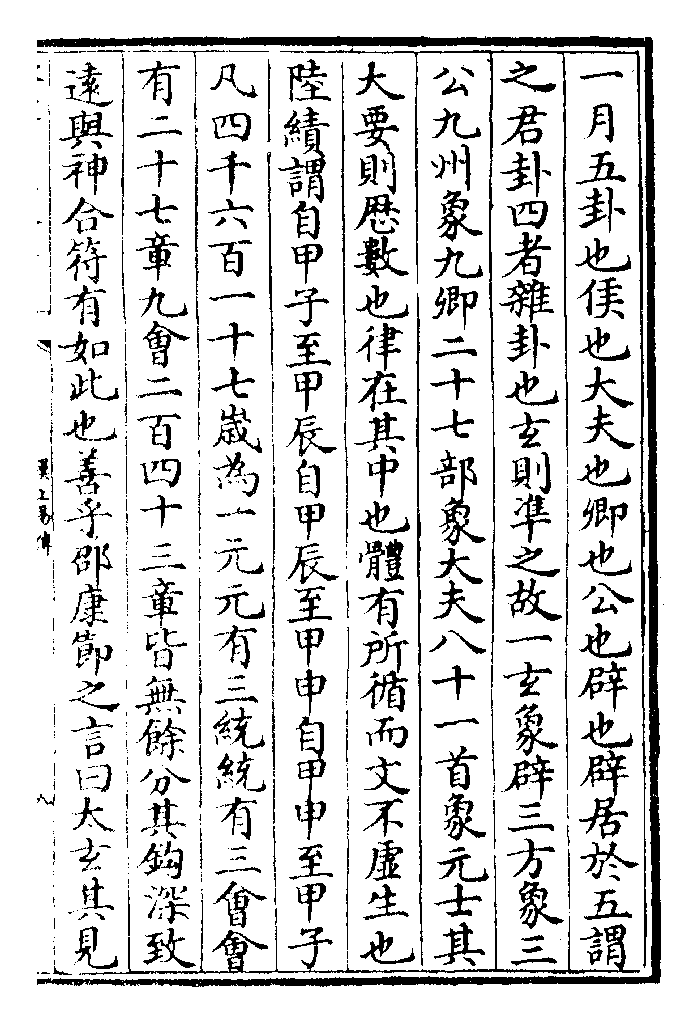 一月五卦也侯也大夫也卿也公也辟也辟居於五謂
之君卦四者雜卦也玄則凖之故一玄象辟三方象三
公九州象九卿二十七部象大夫八十一首象元士其
大要則厯數也律在其中也體有所循而文不虛生也
陸績謂自甲子至甲辰自甲辰至甲申自甲申至甲子
凡四千六百一十七嵗為一元元有三統統有三㑹㑹
有二十七章九㑹二百四十三章皆無餘分其鈎深致
逺與神合符有如此也善乎邵康節之言曰太玄其見
漢上易傳
八